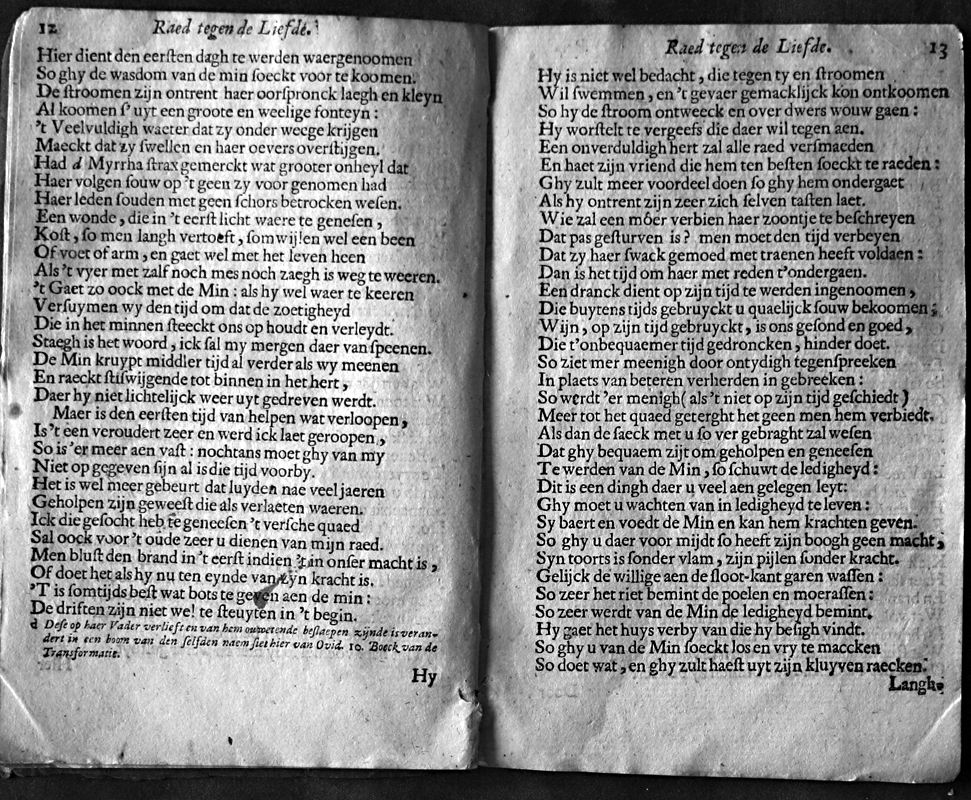 12 Raed tegen de Liefde.
Hier dient den eerſten dagh te werden waergenoomen
So ghy de wasdom van de min ſoeckt voor te koomen.
De ſtroomen zijn ontrent haer oorſpronck laegh en kleyn
Al koomen ſ'uyt een groote en weelige fonteyn :
't Veelvuldigh waeter dat zy onder weege krijgen
Maeckt dat zy ſwellen en haer oevers overſtijgen.
Had d Myrrha ſtrax gemerckt wat grooter onheyl dat
Haer volgen ſouw op 't geen zy voor genomen had
Haer leden ſouden met geen ſchors betrocken weſen.
Een wonde, die in 't eerſt licht waere te geneſen,
Koſt, ſo men langh vertoeft, ſomwijlen wel een been
Of voet of arm, en gaet wel met het leven heen
Als 't vyer met zalf noch mes noch zaegh is weg te weeren.
't Gaet zo oock met de Min : als hy wel waer te keeren
Verſuymen wy den tijd om dat de zoetigheyd
Die in het minnen ſteeckt ons op houdt en verleydt.
Staegh is het woord, ick ſal my mergen daer van ſpeenen.
De Min kruypt middler tijd al verder als wy meenen
En raeckt ſtilſwijgende tot binnen in het hert,
Daer hy niet lichtelijck weer uyt gedreven werdt.
Maer is den eerſten tijd van helpen wat verloopen,
Is 't een veroudert zeer en werd ick laet geroopen,
So is 'er meer aen vaſt : nochtans moet ghy van my
Niet op gegeven ſijn al is die tijd voorby.
Het is wel meer gebeurt dat luyden nae veel jaeren
Geholpen zijn geweeſt die als verlaeten waeren.
Ick die geſocht heb te geneeſen 't verſche quaed
Sal oock voor 't oude zeer u dienen van mijn raed.
Men bluſt den brand in 't eerſt indien 't in onſer macht is,
Of doet het als hy nu ten eynde van zyn kracht is.
'T is ſomtijds beſt wat bots te geven aen de min :
De driften zijn niet wel te ſteuyten in 't begin.
d Deſe op haer Vader verlieft en van hem onwetende beſlaepen zijnde is veran-
dert in een boom van den ſelfden naem ſiet hier van Ovid. 10. Boeck van de
Transformatie.
Hy
Raed tegen de Liefde. 13
Hy is niet wel bedacht, die tegen ty en ſtroomen
Wil ſwemmen, en 't gevaer gemacklijck kon ontkoomen
So hy de ſtroom ontweeck en over dwers wouw gaen :
Hy worſtelt te vergeefs die daer wil tegen aen.
Een onverduldigh hert zal alle raed verſmaeden
En haet zijn vriend die hem ten beſten ſoeckt te raeden :
Ghy zult meer voordeel doen ſo ghy hem ondergaet
Als hy ontrent zijn zeer zich ſelven taſten laet.
Wie zal een móer verbien haer zoontje te beſchreyen
Dat pas geſturven is? men moet den tijd verbeyen
Dat zy haer ſwack gemoed met traenen heeft voldaen :
Dan is het tijd om haer met reden t'ondergaen.
Een dranck dient op zijn tijd te werden ingenoomen,
Die buytens tijds gebruyckt u quaelijck ſouw bekoomen ;
Wijn, op zijn tijd gebruyckt, is ons geſond en goed,
Die t'onbequaemer tijd gedroncken, hinder doet.
So ziet mer meenigh door ontydigh tegenſpreeken
In plaets van beteren verherden in gebreeken :
So werdt 'er menigh ( als 't niet op zijn tijd geſchiedt )
Meer tot het quaed geterght het geen men hem verbiedt.
Als dan de ſaeck met u ſo ver gebraght zal weſen
Dat ghy bequaem zijt om geholpen en geneeſen
Te werden van de Min, ſo ſchuwt de ledigheyd :
Dit is een dingh daer u veel aen gelegen leyt:
Ghy moet u wachten van in ledigheyd te leven :
Sy baert en voedt de Min en kan hem krachten geven.
So ghy u daer voor mijdt ſo heeft zijn boogh geen macht,
Syn toorts is ſonder vlam, zijn pijlen ſonder kracht.
Gelijck de willige aen de ſloot-kant garen waſſen :
So zeer het riet bemint de poelen en moeraſſen :
So zeer werdt van de Min de ledigheyd bemint.
Hy gaet het huys verby van die hy beſigh vindt.
So ghy u van de Min ſoeckt los en vry te maecken
So doet wat, en ghy zult haeſt uyt zijn kluyven raecken.
Langh.